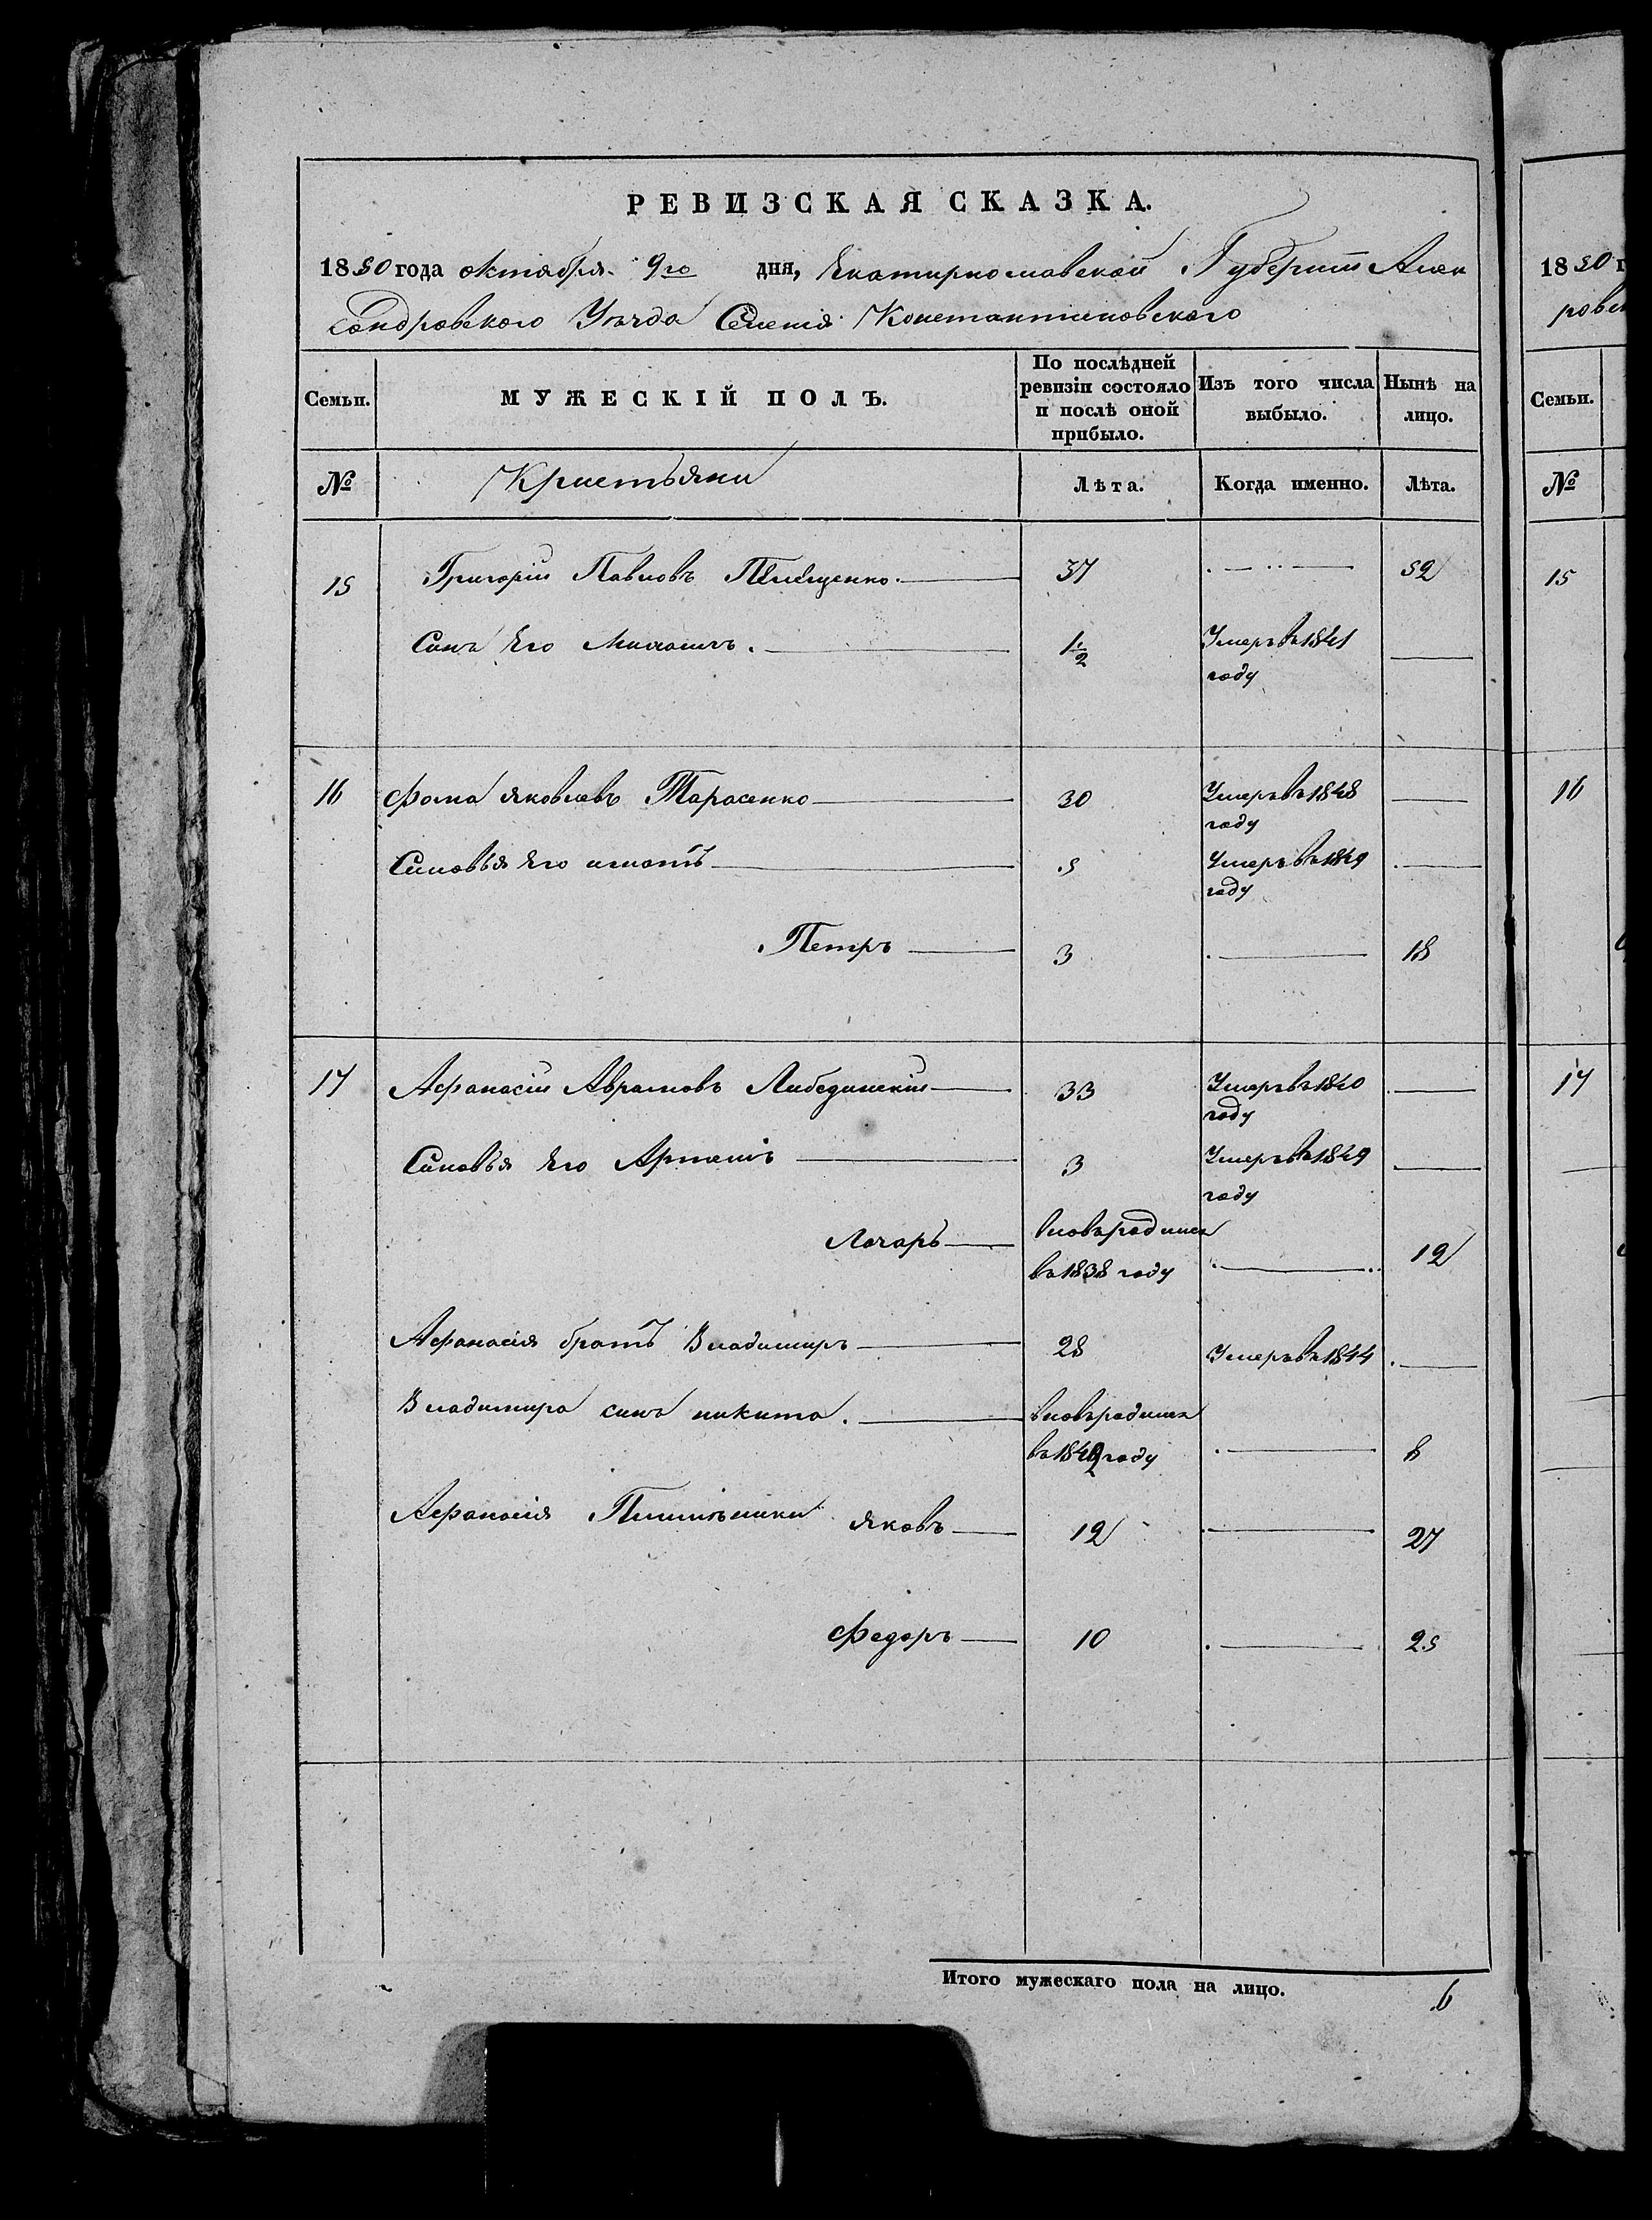 РЕВИЗСКАЯ СКАЗКА.
1850 года октября 9го дня, Екатирнославской Губернии Алек
сондровского Уезда Селения Константиновского
Семьи. МУЖЕСКІЙ ПОЛЪ. По послѣдней ревизіи состояло и послѣ оной прибыло. Изъ того числа выбыло. Нынѣ на лицо.
№ Кристьяни Лѣта. Когда именно. Лѣта.
15 Григорій Павловъ 37 52
Синъ Его Михаилъ. 1 1/2 Умеръ въ 1841
году
16 Фома яковлевъ Тарасенко 30 Умеръ въ 1848
году
Синовья Его игнатъ 5 Умеръ въ 1849
году
Петръ 3 18
17 Афанасій Аврамовъ Либединскій 33 Умеръ въ 1840
году
Синовья Его Артемъ 3 Умеръ въ 1849
году
Лазаръ вновьродился
въ 1838 году 12
Афанасія братъ Владимиръ 28 Умеръ въ 1844
Владимира синъ никита. вновьродился
въ 1842 году 8
Афанасія Племяники яковъ 12 27
Федоръ 10 25
Итого мужескаго пола на лицо. 6
1850 г
Семьи.
№
15
16
17